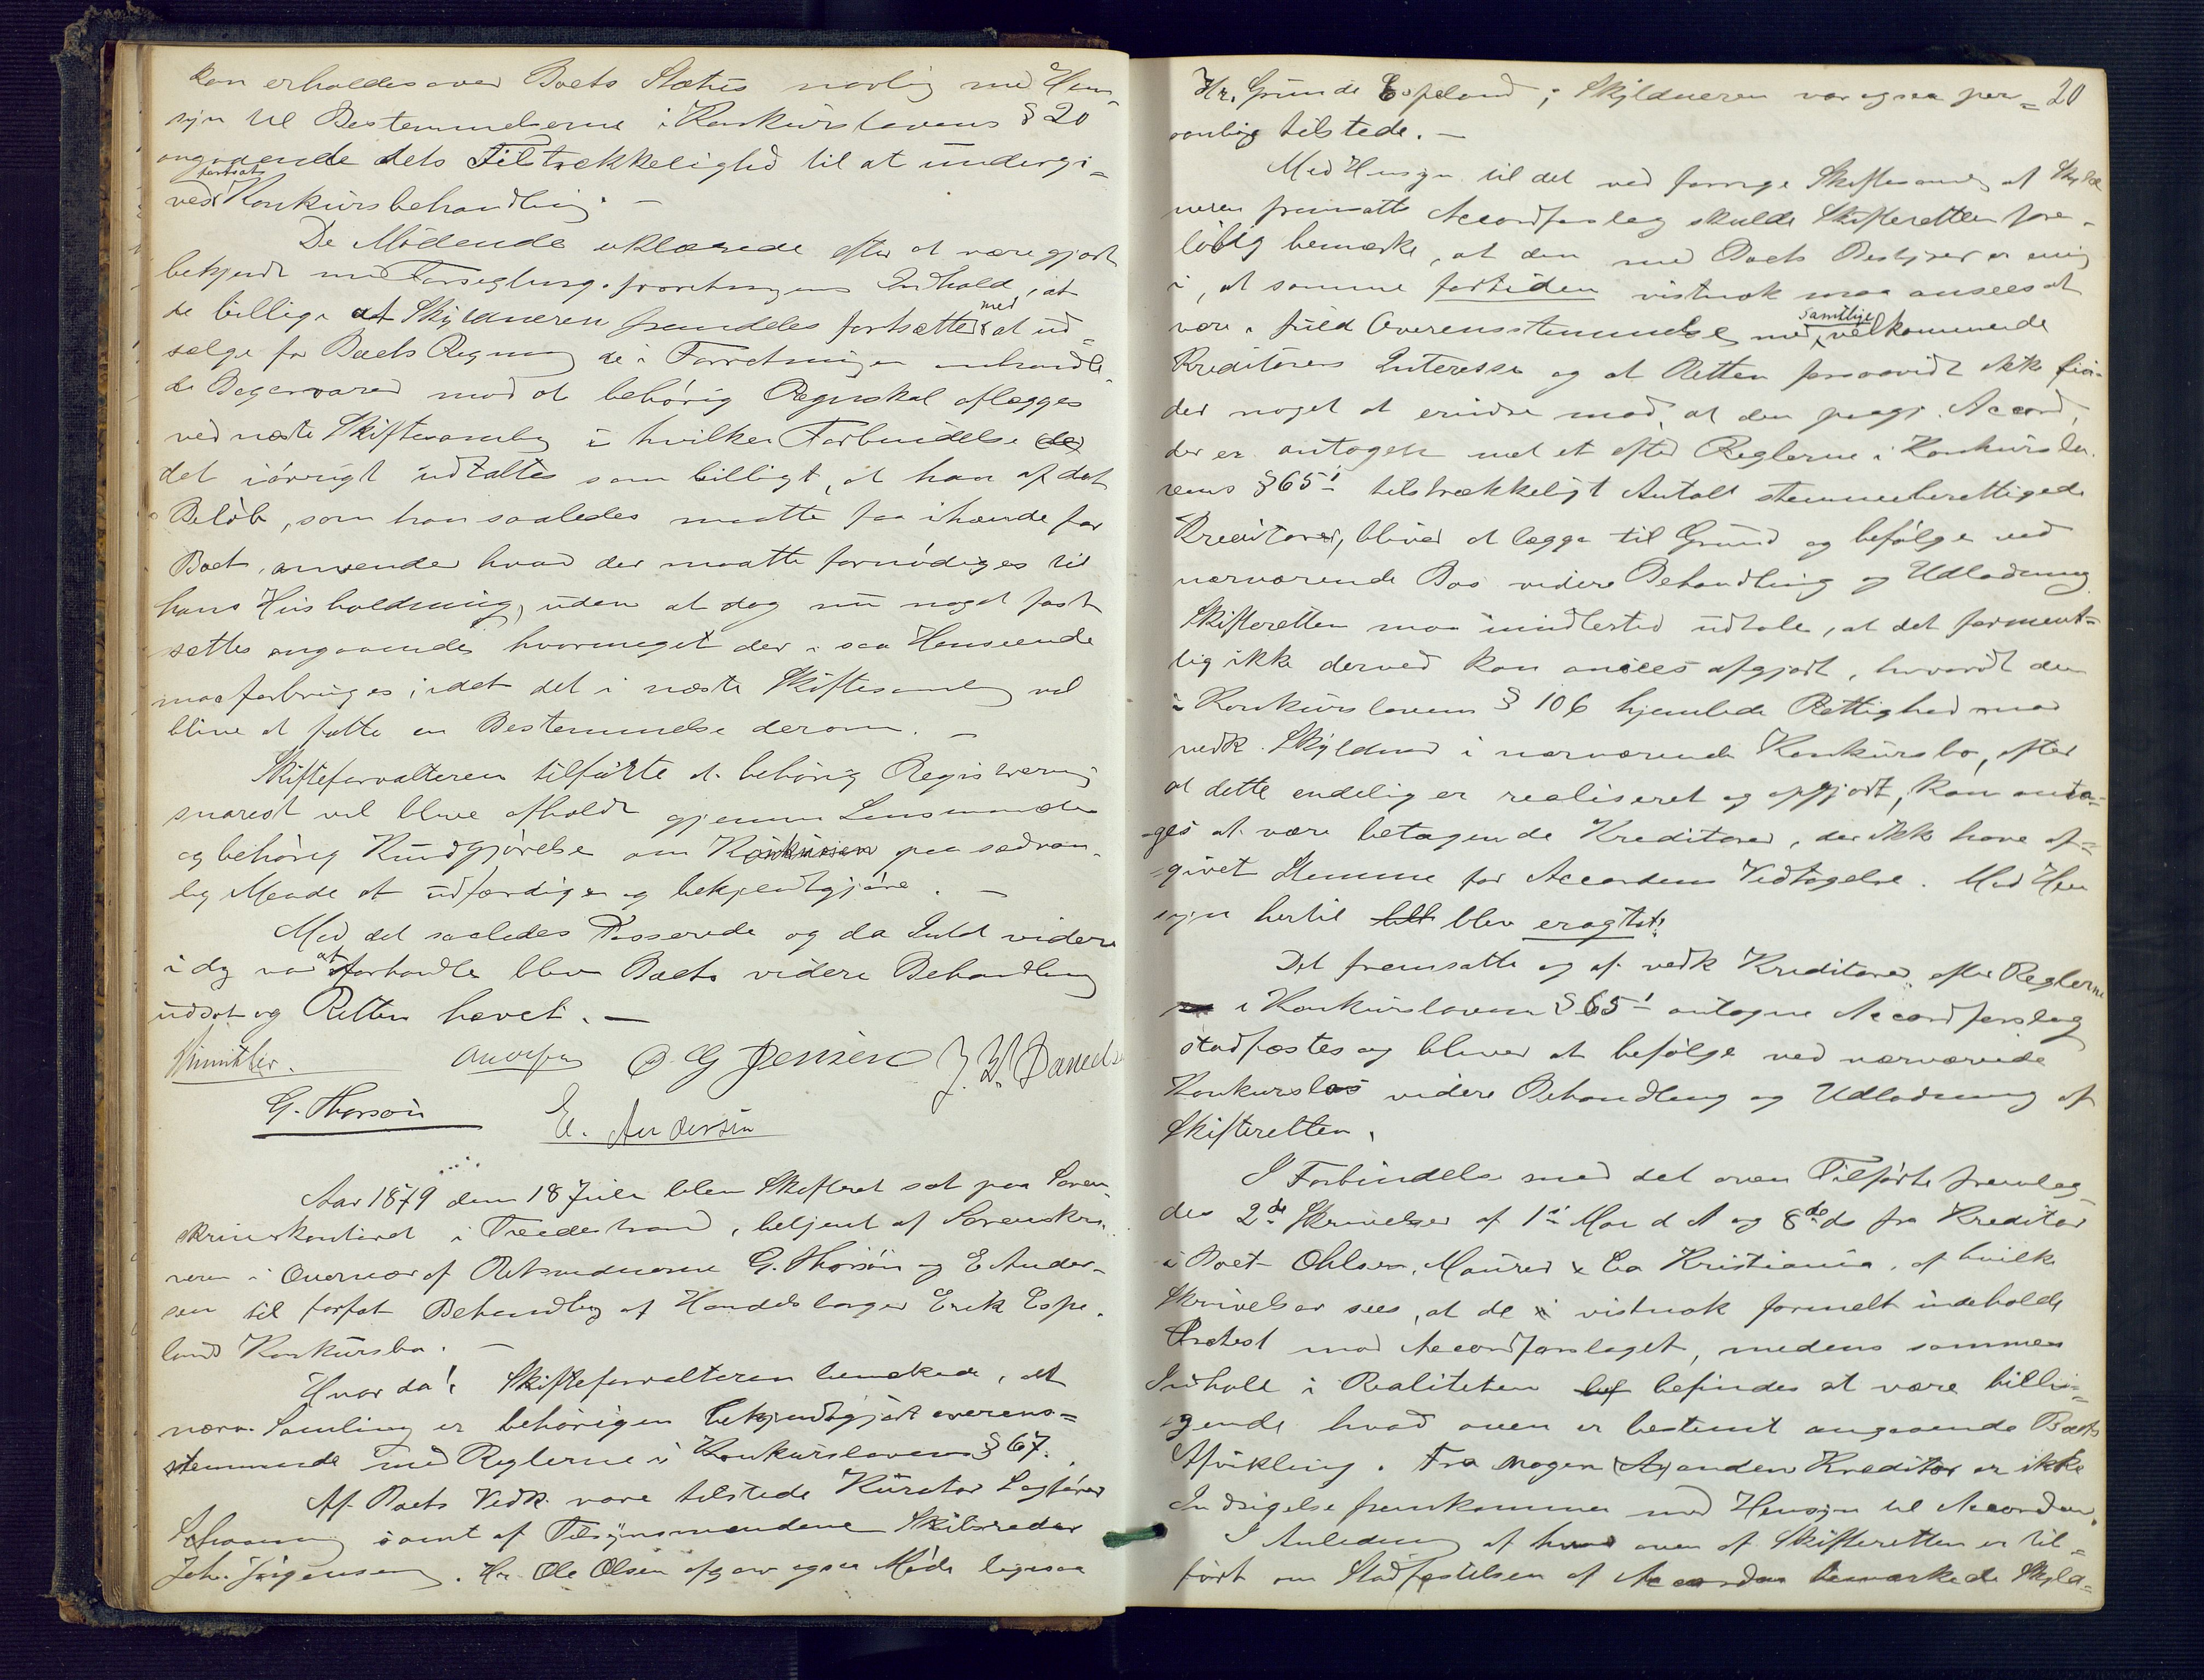 kan erholdes over Boets Status navlig med Hen-
syn til Bestemmelserne i Konkurslovens § 20
angaaende dets Tilstrækkelighed til at undergi-
ves fortsat Konkursbehandling. —
De Mødende erklærede efter at være gjort
bekjendt med Forseglingsforretningens Indhold, at
de billige at Skyldneren fremdeles fortsætter med at ud-
sælge for Boets Regning de i Forretningen omhandle-
de Bagervarer mod at behørig Regnskab aflægges
ved næste Skiftesamling i hvilken Forbindelse
det iøvrigt udtaltes som billigt, at han af det
Beløb, som han saaledes maatte faa ihænde for
Boet, anvender hvad der maatte fornødiges til
hans Husholdning, uden at dog nu noget fast-
sættes angaaende hvormeget der i saa Henseende
maa forbruges, idet det i næste Skiftesamling vil
blive at fatte en Bestemmelse derom. —
Skifteforvalteren tilførte at behørig Registrering
snarest vil blive afholdt gjennem Lensmanden
og behørig Kundgjørelse om Konkursen paa sædvan-
lig Maade at udfærdige og bekjendtgjøre. —
Med det saaledes Passerede og da Intet videre
i dag var at forhandle blev Boets videre Behandling
udsat og Retten hævet. —
O. G Jensen J. W. Daniels
G. Thorsøn E. Andersen
Aar 1879 den 18 Juli blev Skifteret sat paa Soren-
skriverkontoret i Tvedestrand, betjent af Sorenskri-
veren i Overvær af Retsvidnerne G. Thorsøn og E Ander-
sen til fortsat Behandling af Handelsborger Erik Espe-
lands Konkursbo. —
Hvor da! Skifteforvalteren bemærkede, at
nærv. Samling er behørigen bekjendtgjort overens-
stemmende med Reglerne i Konkurslovens § 67.
Af Boets Vedk. vare tilstede Kurator Sagfører
Schaaning samt af Tilsynsmændene Skibsreder
Joh. Jørgensen. Hr. Ole Olsen afgav ogsaa Møde ligesaa
Hr. Gunde Espeland; Skyldneren var ogsaa per- 20
sonlig tilstede. —
Med Hensyn til det ved forrige Skiftesamling af Skyld-
neren fremsatte Accordforslag skulde Skifteretten fore-
løbig bemærke, at den med Boets Bestyrer er enig
i, at samme fortiden vistnok maa ansees at
være i fuld Overensstemmelse med samtlige vedkommende
Kreditorers Interesse og at Retten forsaavidt ikke fin-
der noget at erindre mod, at den paagj. Accord,
der er antagen med et efter Reglerne i Konkurslo-
vens § 65 i tilstrækkeligt Antal stemmeberettigede
Kreditorer, bliver at lægge til Grund og befølge ved
nærværende Bos videre Behandling og Udlodning.
Skifteretten maa imidlertid udtale, at det forment-
lig ikke derved kan ansees afgjort, hvorvidt den
i Konkurslovens § 106 hjemlede Rettighed mod
vedk. Skyldner i nærværende Konkursbo, efter
at dette endelig er realiseret og opgjort, kan anta-
ges at være betagende Kreditorer, der ikke have af-
givet Stemme for Accordens Vedtagelse. Med Hen
syn hertil blev eragtet:
Det fremsatte og af vedk Kreditorer efter Reglerne
i Konkursloven § 65 antagne Accordforslag
stadfæstes og bliver at befølge ved nærværende
Konkursbos videre Behandling og Udlodning af
Skifteretten.
I Forbindelse med det oven Tilførte fremlag-
des 2de Skrivelser af 1ste Mai d A og 8de ds fra Kreditor
i Boet Ohlsen, Maurer & Co Kristiania, af hvilke
Skrivelser sees, at de vistnok formelt indeholde
Protest mod Accordforslaget, medens sammes
Indhold i Realiteten befindes at være billi-
gende hvad oven er bestemt angaaende Boets
Afvikling. Fra nogen anden Kreditor er ikke
Indsigelse fremkommen med Hensyn til Accorden.
I Anledning af hvad oven af Skifteretten er til-
ført om Stadfæstelsen af Accorden bemærkede Skyld-